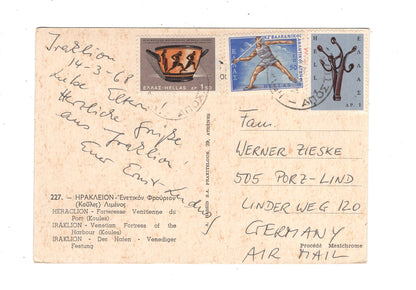 Iraklion
14-3-68
Liebe Eltern!
Herzliche Grüße
aus Iraklion!
Euer Ernst-
ΕΛΛΑΣ-HELLAS ΔΡ. 1.50
ΕΛΛΑΣ
HELLAS
ΔΡ. 1
Fam.
WERNER ZIESKE
505 PORZ-LIND
LINDER WEG 120
GERMANY
AIR MAIL
227. - ΗΡΑΚΛΕΙΟΝ-Ἑνετικόν Φρούριον
(Κούλες) Λιμένος
HERACLION - Forteresse Venitienne du
Port (Koules)
IRAKLION - Venetian Fortress of the
Harbour (Koules)
IRAKLION - Des Hafen - Venediger
Festung
Procédé Mexichrome